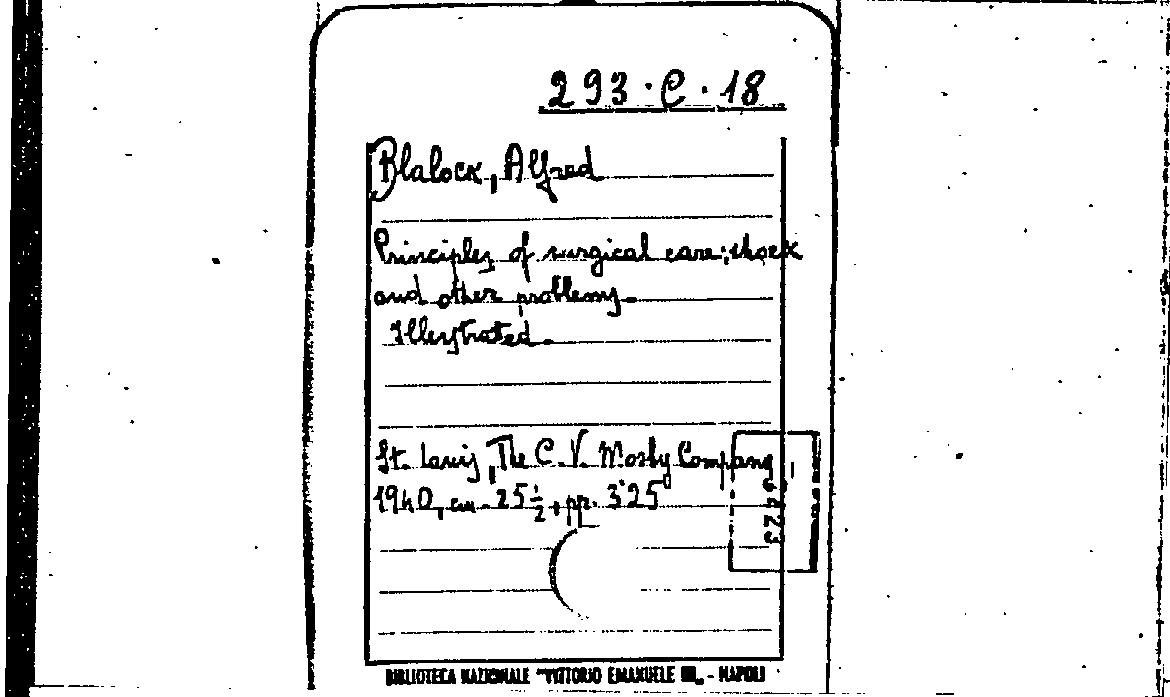 293·C·18
Blalock, Alfred
Principles of surgical care: shock
and other problems.
Illustrated.
St. Louis, The C. V. Mosby Company
1940, cm. 25½, pp. 325
BIBLIOTECA NAZIONALE "VITTORIO EMANUELE III„ - NAPOLI